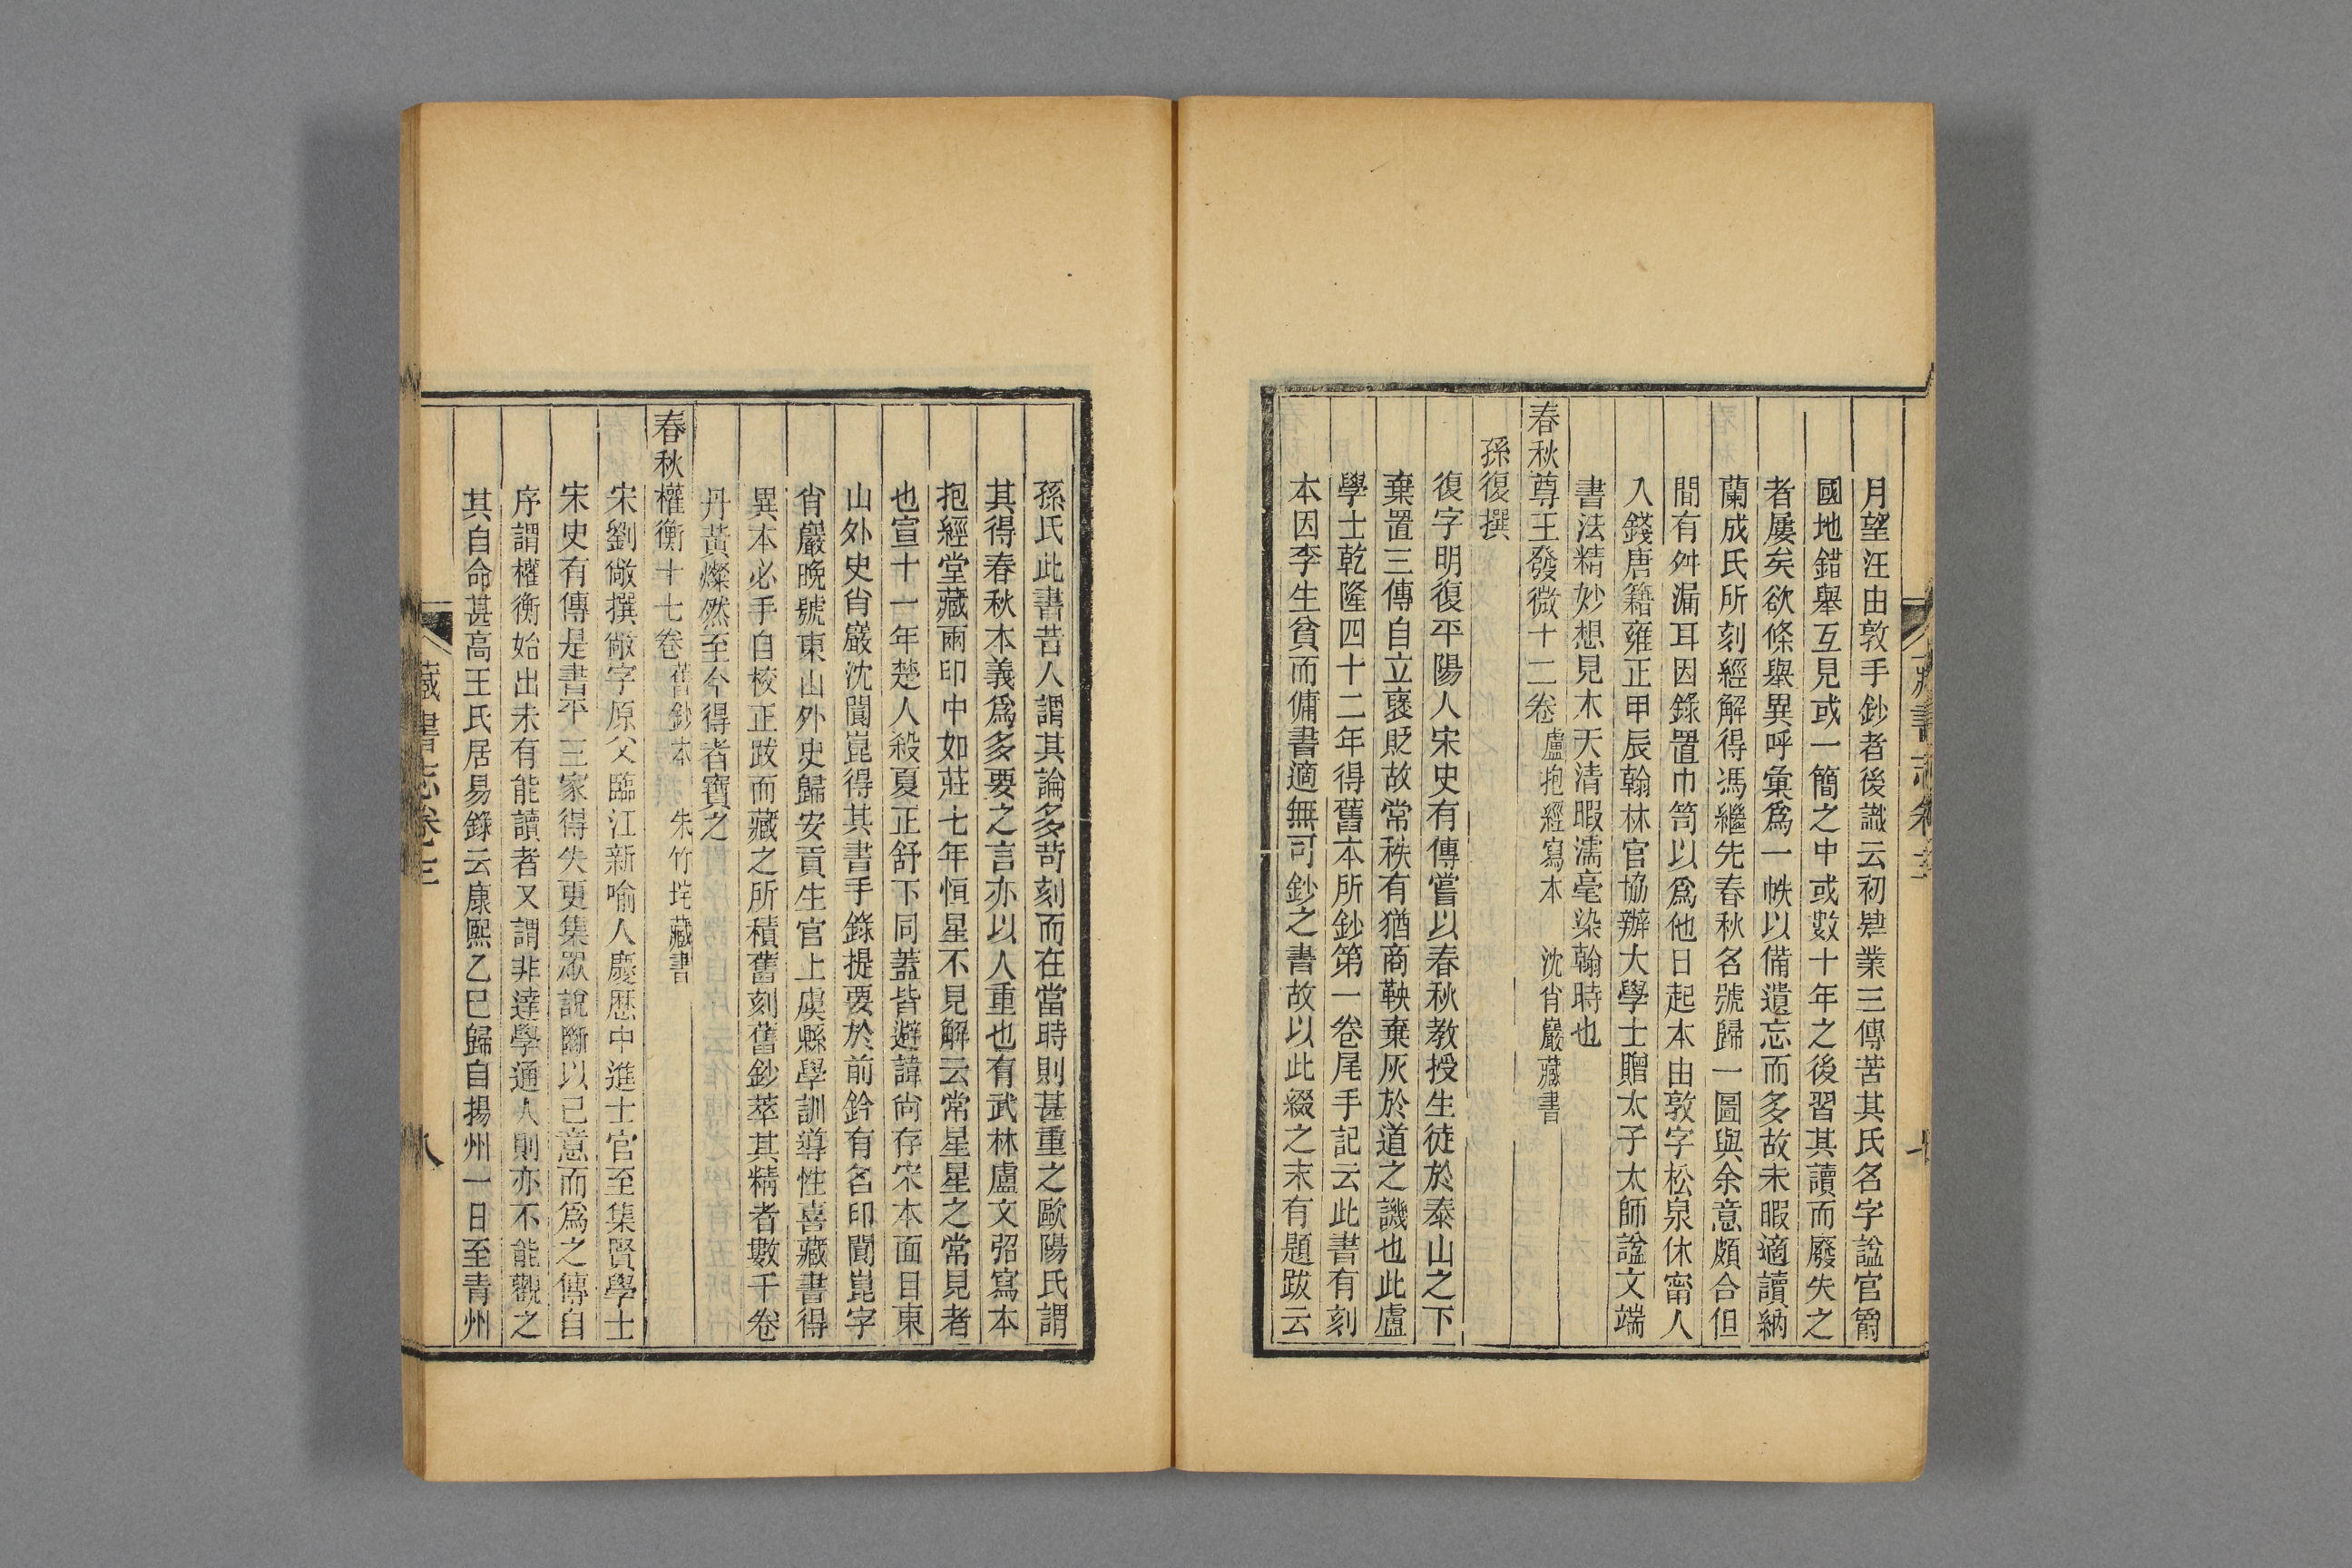 月望汪由敦手鈔者後識云初肄業三傳苦其氏名字諡官爵
國地錯舉互見或一簡之中或數十年之後習其讀而廢失之
者屢矣欲條舉異呼彙爲一帙以備遺忘而多故未暇適讀納
蘭成氏所刻經解得馮繼先春秋名號歸一圖與余意頗合但
間有舛漏耳因錄置巾笥以爲他日起本由敦字松泉休甯人
入錢唐籍雍正甲辰翰林官協辦大學士贈太子太師諡文端
書法精妙想見木天清暇濡毫染翰時也
春秋尊王發微十二卷 盧抱經寫本 沈肖巖藏書
孫復撰
復字明復平陽人宋史有傳嘗以春秋教授生徒於泰山之下
棄置三傳自立襃貶故常秩有猶商鞅棄灰於道之譏也此盧
學士乾隆四十二年得舊本所鈔第一卷尾手記云此書有刻
本因李生貧而傭書適無可鈔之書故以此綴之末有題跋云
孫氏此書昔人謂其論多苛刻而在當時則甚重之歐陽氏謂
其得春秋本義爲多要之言亦以人重也有武林盧文弨寫本
抱經堂藏兩印中如莊七年恒星不見解云常星星之常見者
也宣十一年楚人殺夏正舒下同蓋皆避諱尙存宋本面目東
山外史肖巖沈閬崑得其書手錄提要於前鈐有名印閬崑字
肖巖晚號東山外史歸安貢生官上虞縣學訓導性喜藏書得
異本必手自校正跋而藏之所積舊刻舊鈔萃其精者數千卷
丹黃燦然至今得者寶之
春秋權衡十七卷 舊鈔本 朱竹垞藏書
宋劉敞撰敞字原父臨江新喻人慶歷中進士官至集賢學士
宋史有傳是書平三家得失更集眾說斷以己意而爲之傳自
序謂權衡始出未有能讀者又謂非達學通人則亦不能觀之
其自命甚高王氏居易錄云康熙乙巳歸自揚州一日至青州
藏書志卷三
八